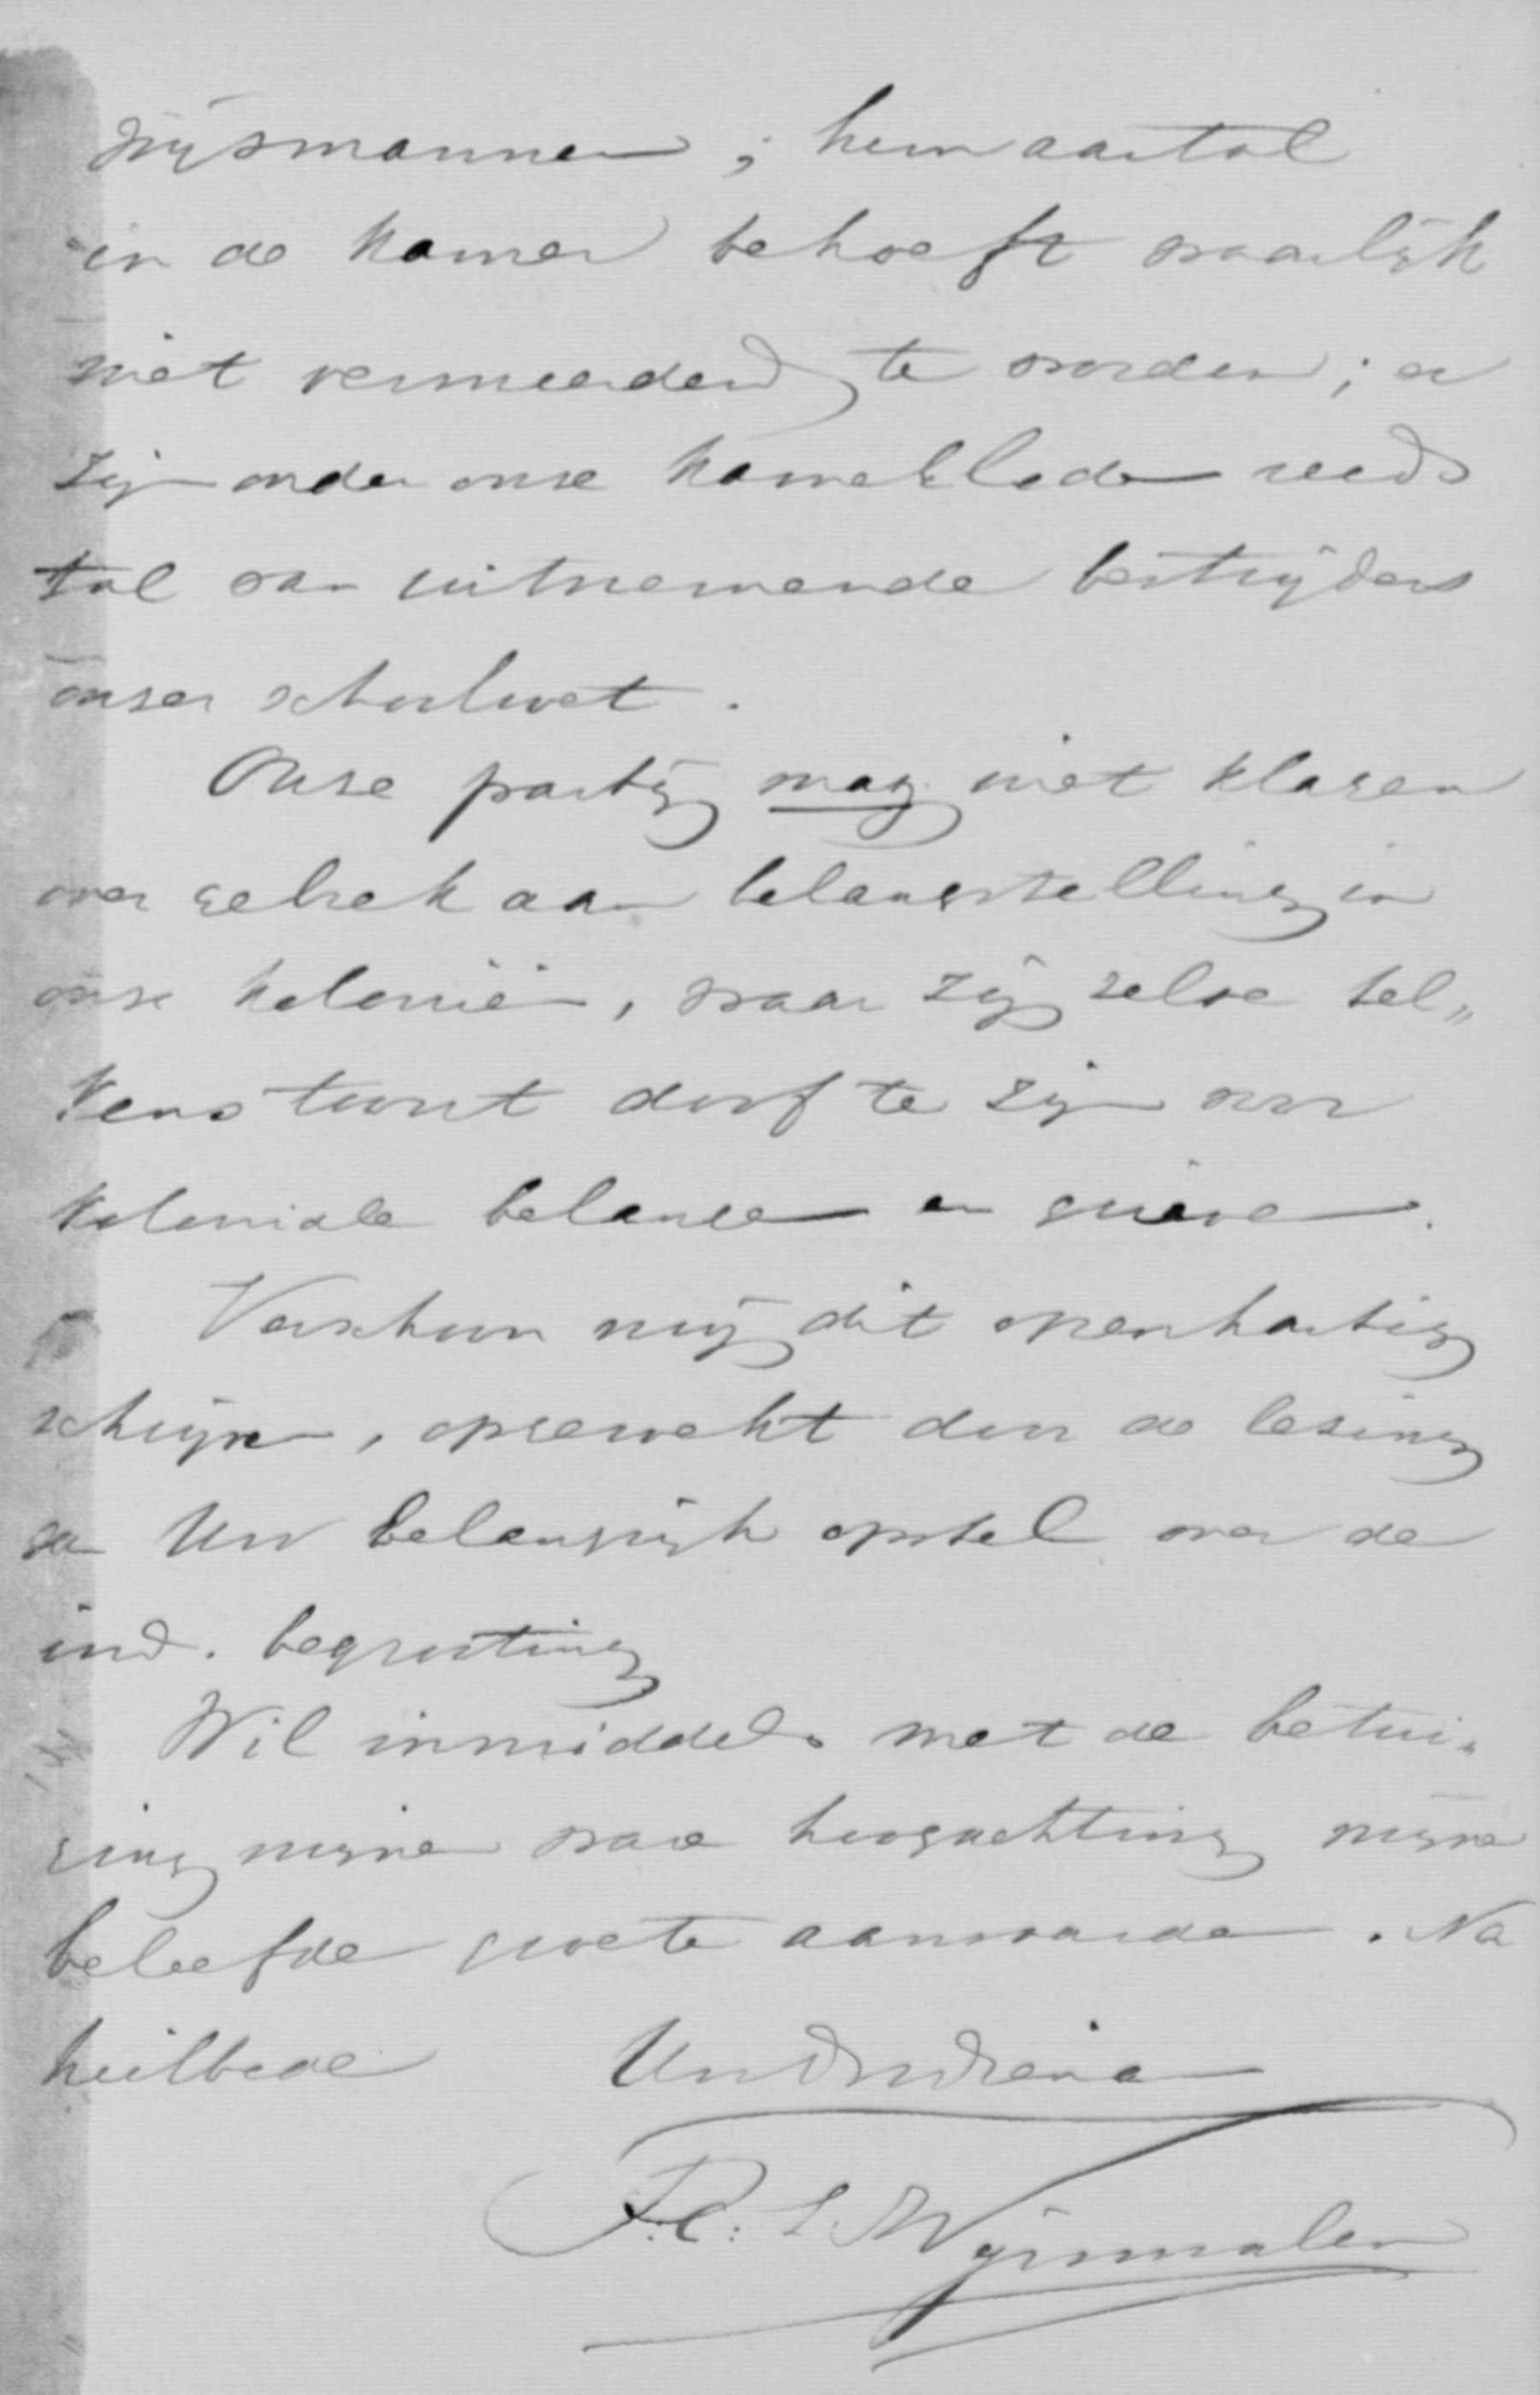 wijsmannen; hun aantal
in de kamer behoeft waarlijk
niet vermeerderd te worden; er
zijn onder onze kamerleden reeds
tal van uitnemende bestrijders
onzer schoolwet.
Onze partij mag niet klagen
over gebrek aan belangstelling in
onze koloniën, waar zij zelve tel„
kens toont doof te zijn voor
koloniale belangen en grieven.
Verschoon mij dit openhartig
schrijven, opgewekt door de lezing
van Uw belangrijk opstel over de
ind. begrooting
Wil inmiddels met de betui„
ging mijner ware hoogachting mijne
beleefde groete aanvaarden. Na
heilbede Uw dw dienaar
T.C.L. Wijnmalen